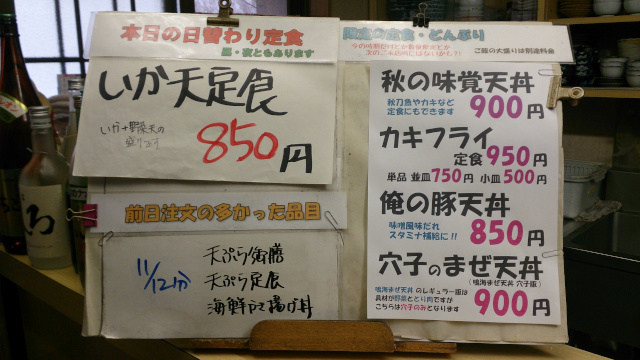 本日の日替わり定食
昼・夜ともあります
いか天定食
いか+野菜天の
盛り合わせ
850円
前日注文の多かった品目
11/12分
天ぷら御膳
天ぷら定食
海鮮かき揚げ丼
限定の定食・どんぶり
ご飯の大盛りは別途料金
秋の味覚天丼
秋刀魚やカキなど
定食にもできます
900円
カキフライ
定食950円
単品 並皿750円 小皿500円
俺の豚天丼
味噌風味だれ
スタミナ補給に!!
850円
穴子のまぜ天丼
(鳴海まぜ天丼 穴子版)
鳴海まぜ天丼 のレギュラー版は
具材が野菜ととり肉ですが
こちらは穴子のみとなります
900円